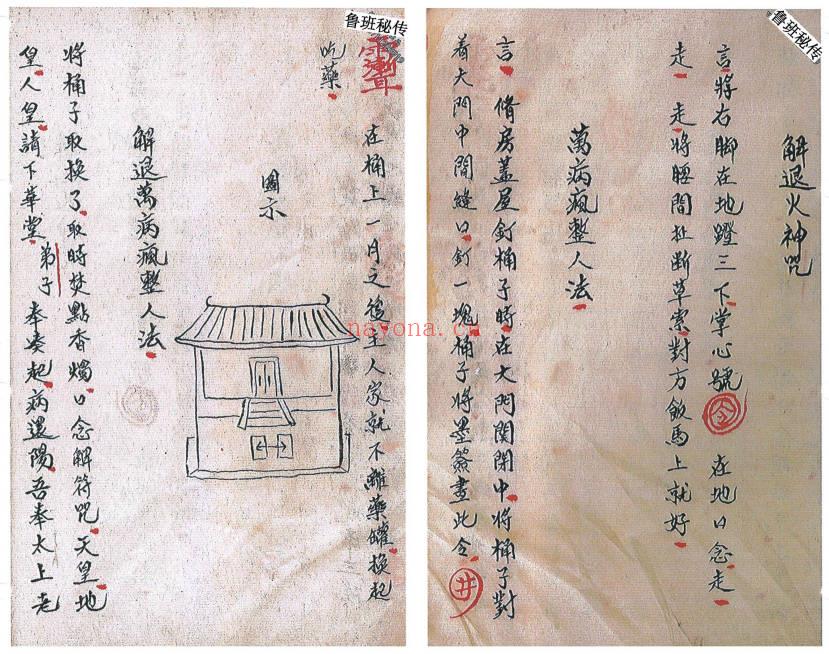 鲁班秘传
解退火神咒
言將右脚在地蹬三下掌心號 在地口念走
走 走將腰間扯斷草索對方飯馬上就好
萬病瘋整人法
言 脩房蓋屋釘桶子時在大門関閉中將桶子對
着大門中間縫口釘一塊桶子將墨簽畫此令 井
鲁班秘传
在桶上一月之後主人家就不離藥罐換起
吃藥
圖示
解退萬病瘋整人法
將桶子取換了取時焚點香燭口念解符咒天皇地
皇人皇請下華堂弟子奉凑起病還陽吾奉太上老
nayona.cn